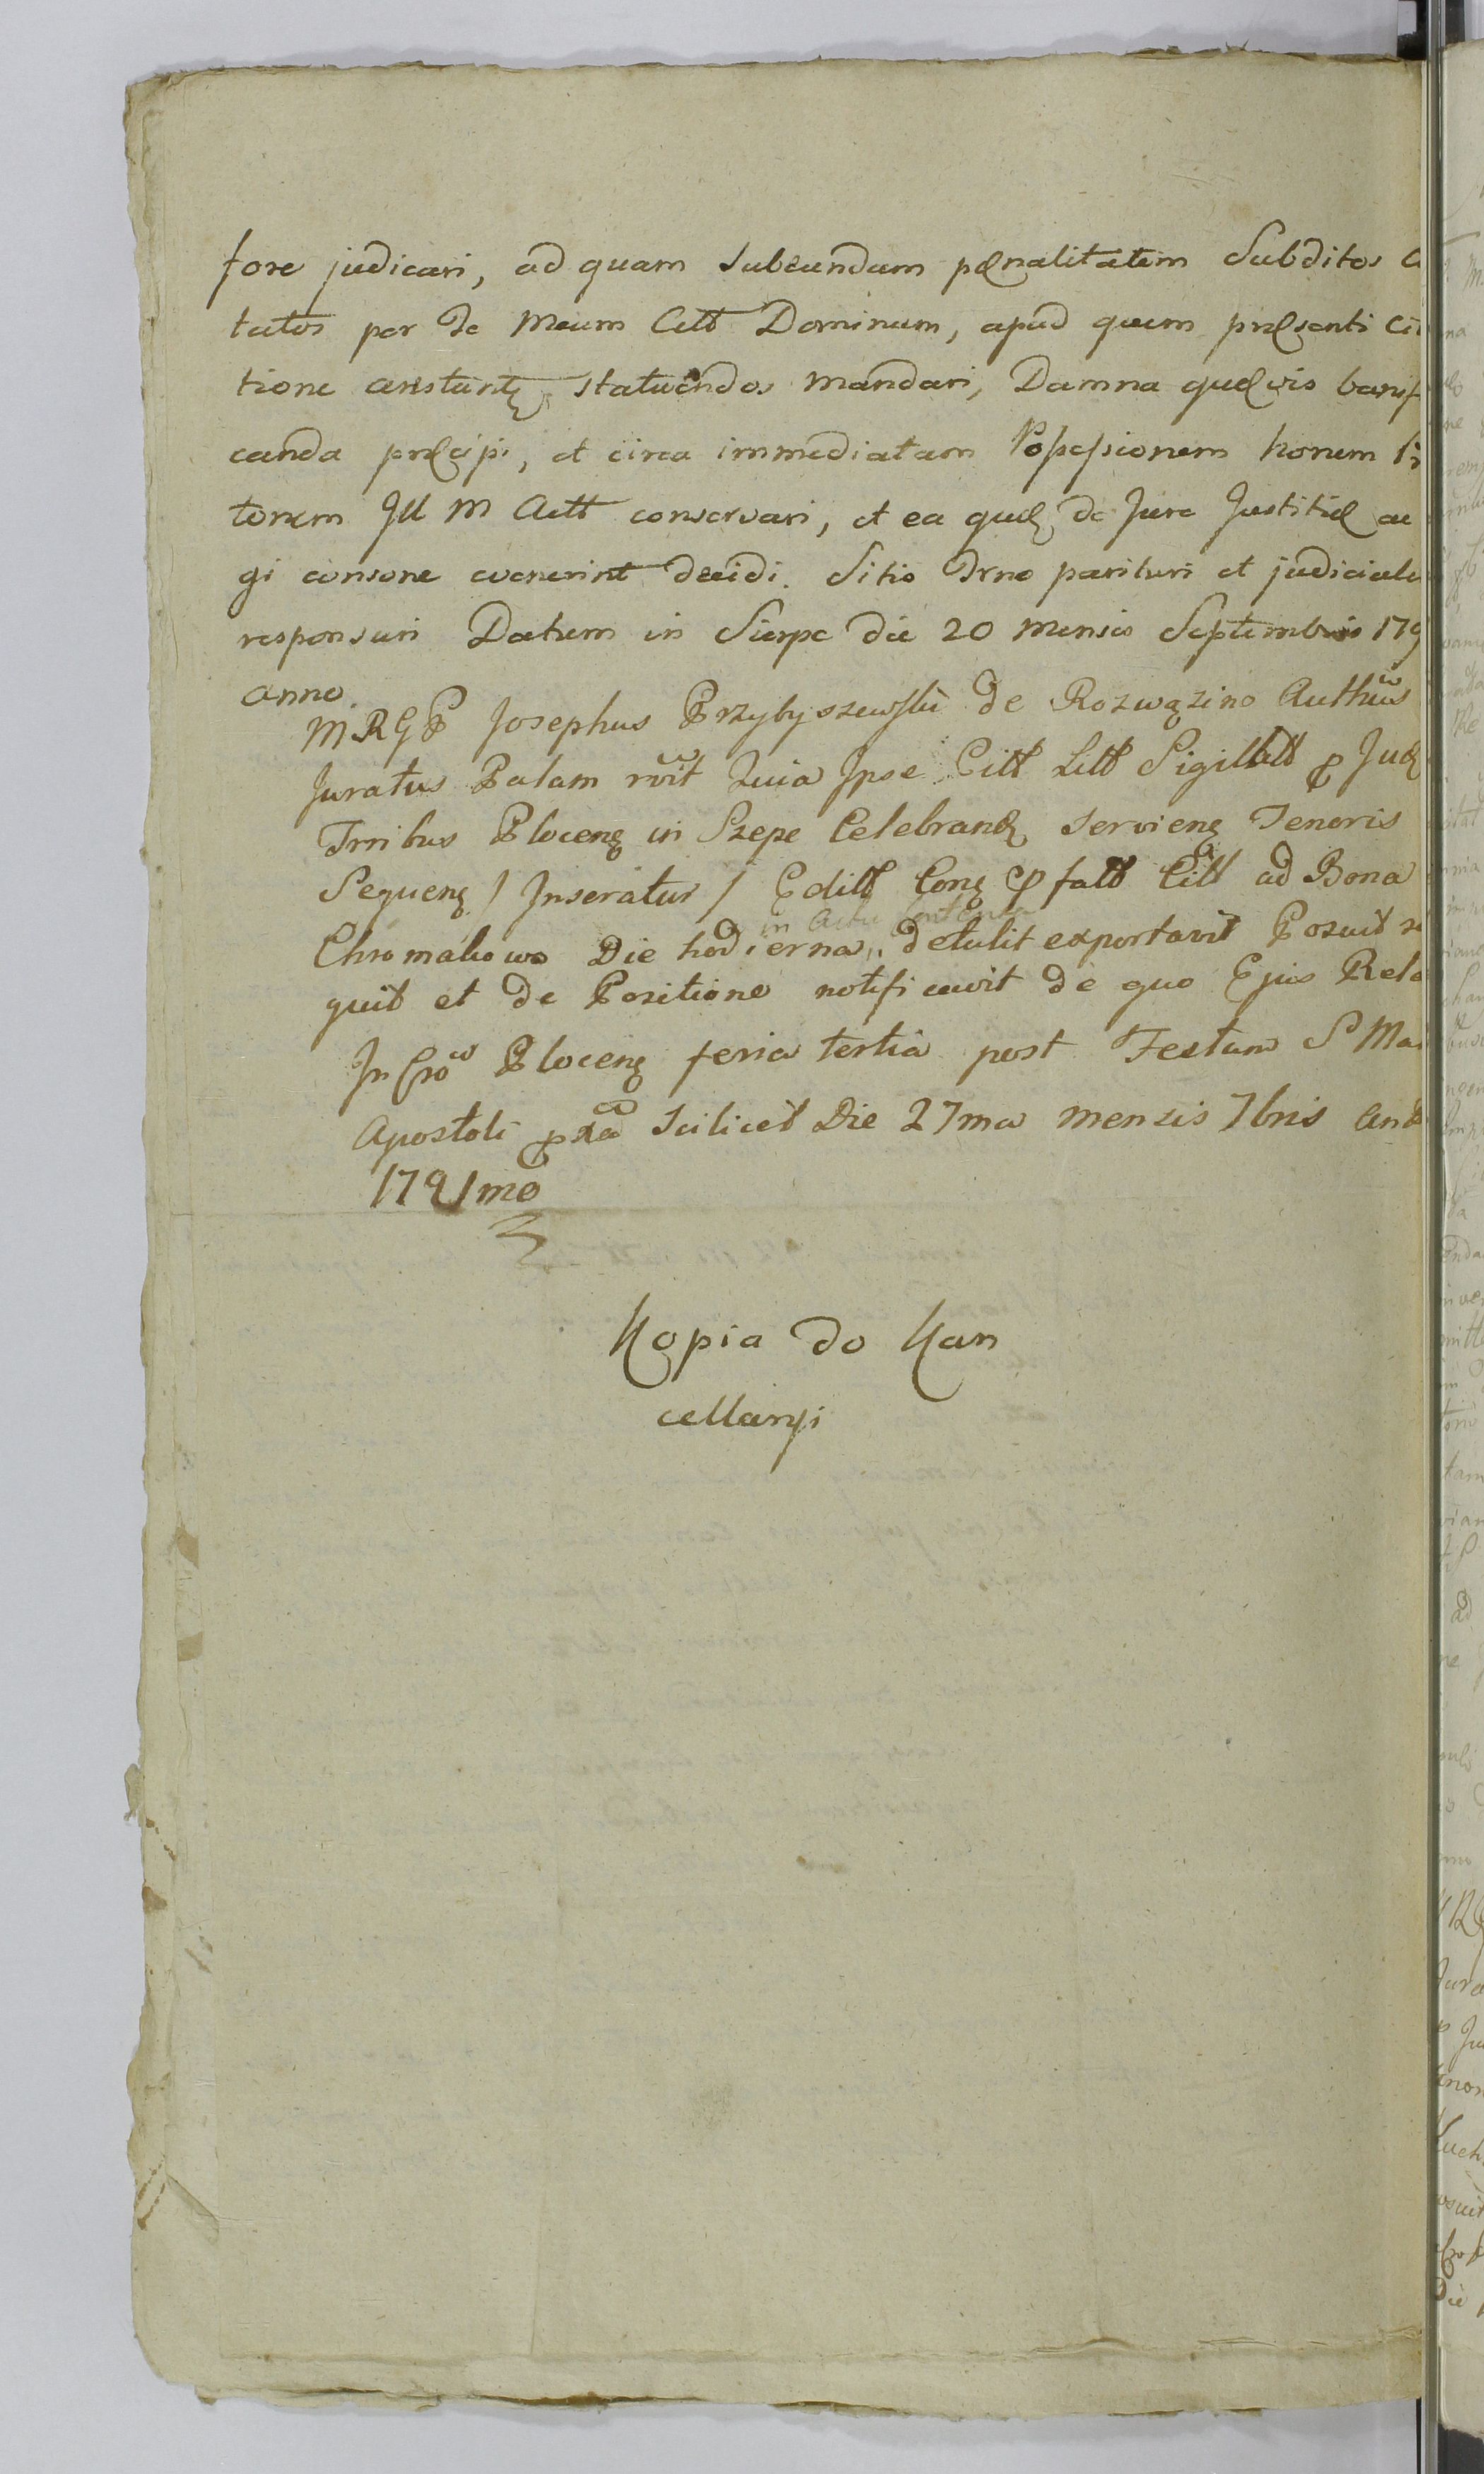 fore judicari, ad quam subeundam pęnalitatem Subditos C
tatos per te Meum Citt Dominum, apud quem pręsenti Ci
tione arestantę statuendos mandari, Damna quęvis bonif
canda pręcipi, et circa immediatam Possessionem horum
torum Ill M Actt conservari, et ea quę de Jure Justitię ac
gi consone evenerint decidi. Sitis Trno parituri et judicialr
responsuri Datum in Sierpc die 20 Mensis Septembris 179
anno.
MRGP Josephus Przybyszewski de Rozwązino Authūs
Juratus Palam rōit Quia Ipse Citt Litt Sigillatt p Jud
Trribus Plocenę in Szepc Celebrandę servienę Tenoris
Sequenę / Inseratur / Editt Conę p fatt Citt ad Bona
in Actu Contenta
Chromakowo Die hodierna,, detulit exportavit Posuit re
quit et de Positione notificavit de quo Ejus Rela
In Cro Plocenę feria tertia post Festum S Mat
Apostoli pxa Scilicet Die 27ma mensis 7bris And
1791mo
Kopia do Kan
cellaryi